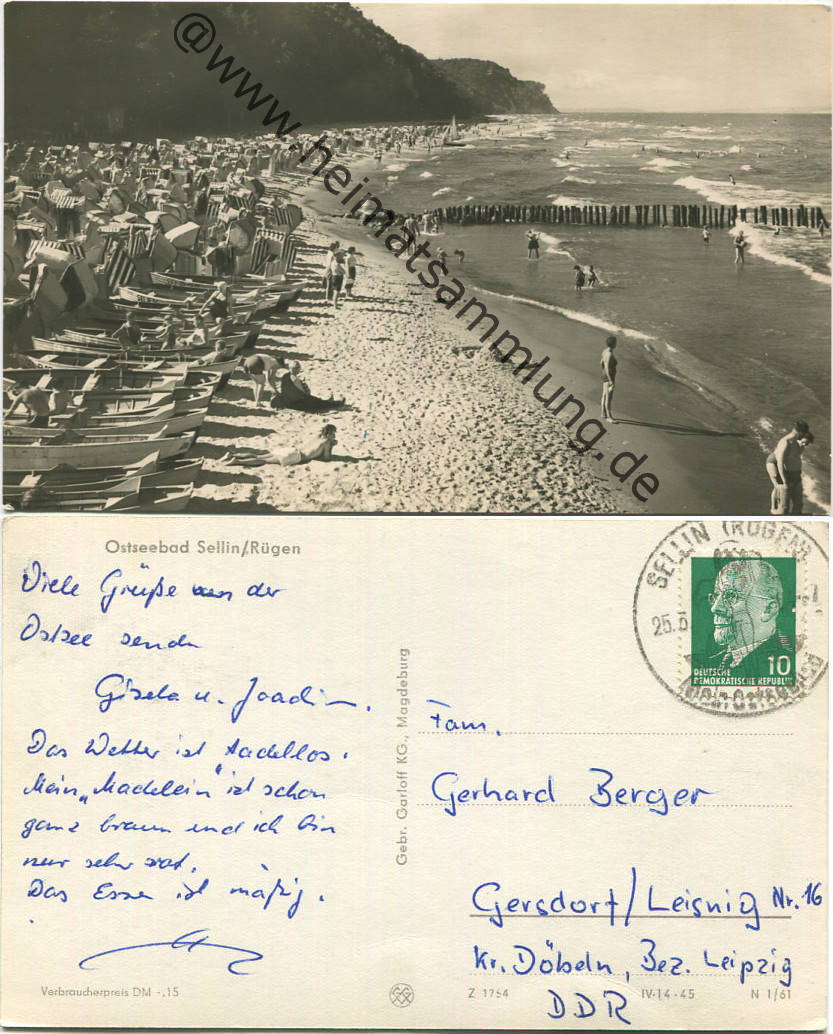 @www.heimatsammlung.de
Ostseebad Sellin/Rügen
Viele Grüße von der
Ostsee senden
Gisela u. Joachim.
Das Wetter ist tadellos.
Mein „Madelein" ist schon
ganz braun und ich bin
nur sehr rot.
Das Essen ist mäßig.
Verbraucherpreis DM -,15
Gebr. Garloff KG., Magdeburg
SELLIN (RÜGEN)
25.
DEUTSCHE
DEMOKRATISCHE REPUBLIK
10
Fam.
Gerhard Berger
Gersdorf/Leisnig Nr. 16
Kr. Döbeln, Bez. Leipzig
DDR
Z 1754 IV-14-45 N 1/61